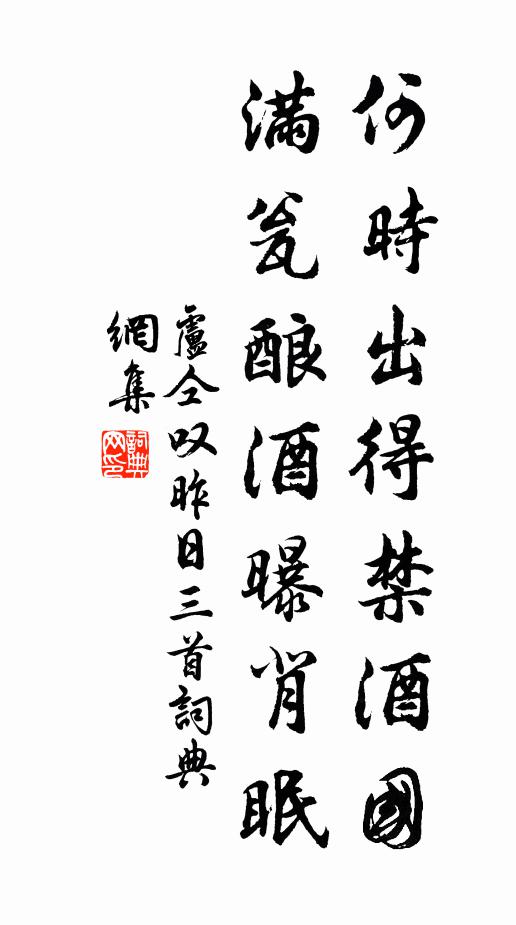 何時出得禁酒國
滿瓮酿酒曝背眠
盧仝叹昨日三首詞典
網集
詞典
网印